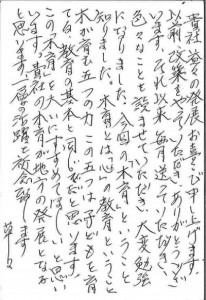 貴社益々の発展お喜び申し上げます。
以前、文集を送っていただき、ありがとうござ
います。それ以来毎月送っていただき、
色々なことを教えていただき、大変勉強
になりました。今回の「木育」ということ
知りました。木育とは「心」の教育という
木が育む五つの力 この五つは子どもを育
てる、教育の基本と同じだと思います。
この「木育」を大いにすすめてほしいと思い
います。貴社の木育が地方の発展となる
と思います。一層の活躍を祈念致します
草々